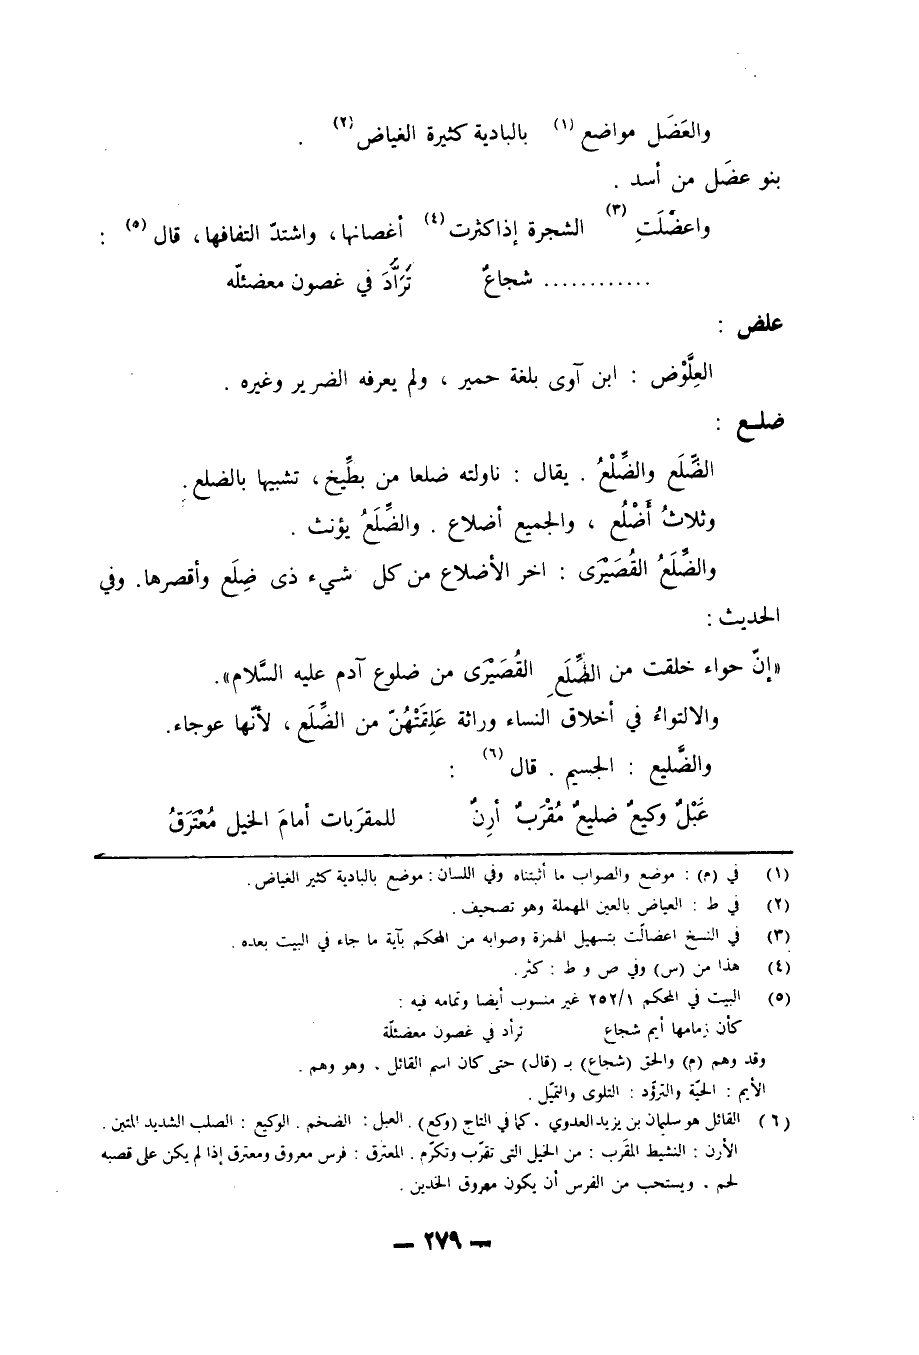 والعَضَل مواضع (١) بالبادية كثيرة الغياض (٢) .
بنو عضَل من أسد .
واعضْلَتِ (٣) الشجرة إذا كثرت (٤) أغصانها، واشتدّ التفافها، قال (٥) :
............ شجاعٌ تُرَأَّدَ في غصون معضئلّه
علض :
العِلَّوْض : ابن آوى بلغة حمير ، ولم يعرفه الضرير وغيره .
ضلـع :
الضِّلَع والضِّلْعُ . يقال : ناولته ضلعا من بطِّيخ، تشبيها بالضلع .
وثلاثُ أَضْلُع ، والجميع أضلاع . والضِّلَعُ يؤنث .
والضِّلَعُ القُصَيْرَى : اخر الأضلاع من كل شيء ذى ضِلَع وأقصرها. وفي
الحديث :
«إنّ حواء خلقت من الضِّلَعِ القُصَيْرَى من ضلوع آدم عليه السَّلام».
والالتواءُ في أخلاق النساء وراثة عَلِقَتْهُنّ من الضِّلَع ، لأنّها عوجاء.
والضَّليع : الجسيم . قال (٦) :
عَبْلٌ وكيعٌ ضليعٌ مُقْرَبٌ أرِنٌ للمقرَبات أمامَ الخيل مُعْتَرَقُ
(١) في (م) : موضع والصواب ما أثبتناه وفي اللسان : موضع بالبادية كثير الغياض.
(٢) في ط : العياض بالعين المهملة وهو تصحيف .
(٣) في النسخ اعضالّت بتسهيل الهمزة وصوابه من المحكم بآية ما جاء في البيت بعده .
(٤) هذا من (س) وفي ص و ط : كثر.
(٥) البيت في المحكم ٢٥٢/١ غير منسوب أيضا وتمامه فيه :
كأن زمامها أيم شجاع ترأد في غصون معضئلّة
وقد وهم (م) والحق (شجاع) بـ (قال) حتى كان اسم القائل . وهو وهم .
الأيم : الحيّة والترؤّد : التلوى والتميّل .
(٦) القائل هو سليمان بن يزيد العدوي . كما في التاج (وكع) . العبل : الضخم . الوكيع : الصلب الشديد المتين .
الأرن : النشيط المقرَب : من الخيل التى تقرّب وتكرّم . المعترق : فرس معروق ومعترق إذا لم يكن على قصبه
لحم . ويستحب من الفرس أن يكون مهروق الخدين .
— ٢٧٩ —